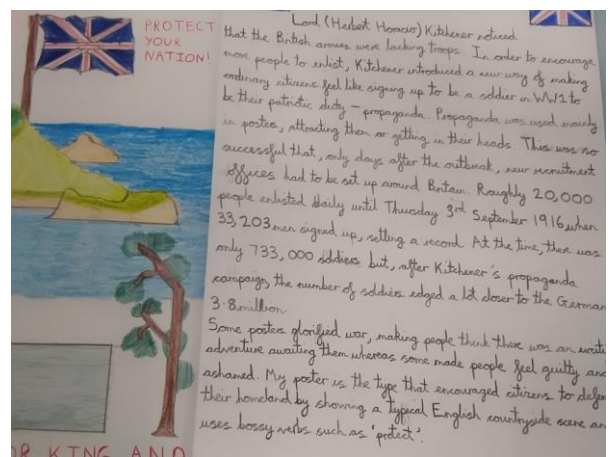 PROTECT
YOUR
NATION!
Lord (Herbert Horacio) Kitchener noticed
that the British armies were lacking troops. In order to encourage
more people to enlist, Kitchener introduced a new way of making
ordinary citizens feel like signing up to be a soldier in WW1 to
be their patriotic duty – propaganda. Propaganda was used mainly
in posters, attracting them or getting in their heads. This was so
successful that, only days after the outbreak, new recruitment
offices had to be set up around Britain. Roughly 20,000
people enlisted daily until Thursday 3rd September 1916 when
33,203 men signed up, setting a record. At the time, there was
only 733,000 soldiers but, after Kitchener's propaganda
campaign, the number of soldiers edged a lot closer to the German
3.8 million.
Some posters glorified war, making people think there was an exciti
adventure awaiting them whereas some made people feel guilty and
ashamed. My poster is the type that encouraged citizens to defen
their homeland by showing a typical English countryside scene an
uses bossy verbs such as 'protect'.
OR KING AND